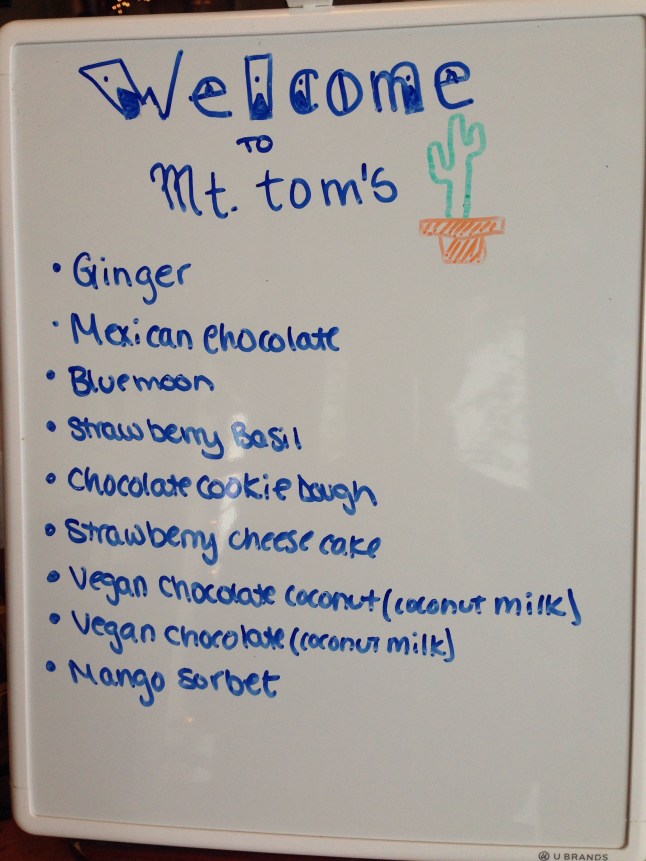 Welcome
TO
Mt. tom's
• Ginger
• Mexican chocolate
• Bluemoon
• Strawberry Basil
• Chocolate cookie Dough
• Strawberry cheese cake
• Vegan chocolate coconut (coconut milk)
• Vegan chocolate (coconut milk)
• Mango sorbet
U BRANDS